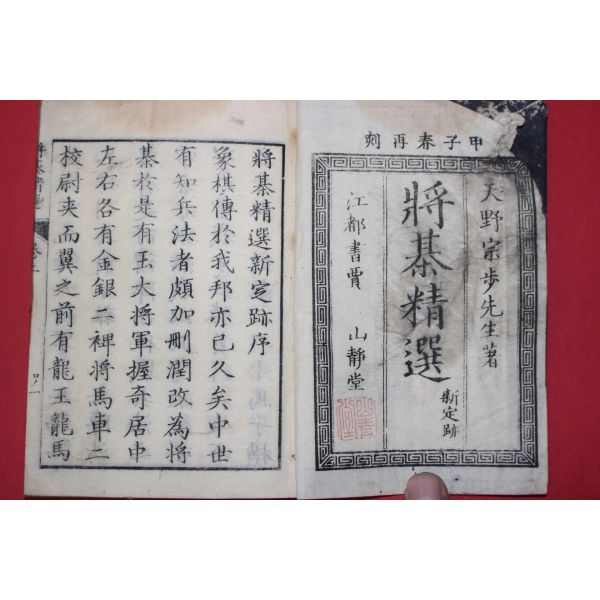 甲子春再刻
天野宗歩先生著
將棊精選
新定跡
江都書賈 山靜堂
將棊精選新定跡序
象棋傳於我邦亦已久矣中世
有知兵法者頗加刪潤改為將
棊於是有王大將軍握奇居中
左右各有金銀二裨將馬車二
校尉夾而翼之前有龍王龍馬